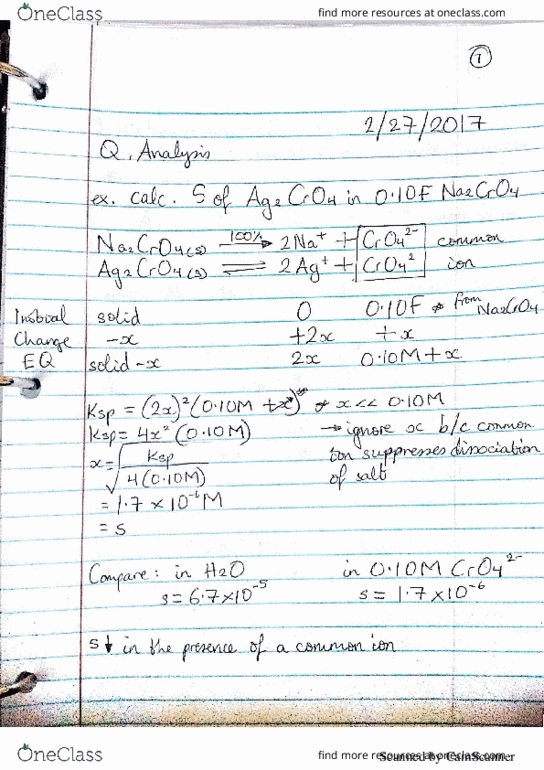 OneClass find more resources at oneclass.com
1
2/27/2017
Q. Analysis
ex. calc. S of Ag2CrO4 in 0.10F Na2CrO4
Na2CrO4(s) 100%→ 2Na⁺ + CrO4²⁻ common
Ag2CrO4(s) ⇌ 2Ag⁺ + CrO4² ion
solid 0 0.10F * from Na2CrO4
Change -x +2x +x
EQ solid -x 2x 0.10M + x
Ksp = (2x)²(0.10M + x) * x << 0.10M
Ksp = 4x² (0.10M) → ignore x b/c common
x = √(Ksp / 4(0.10M)) ion suppresses dissociation
of salt
= 1.7 × 10⁻⁶ M
= s
Compare: in H2O in 0.10M CrO4²⁻
s = 6.7×10⁻⁵ s = 1.7×10⁻⁶
s↓ in the presence of a common ion
OneClass find more resources at oneclass.com
Scanned by CamScanner